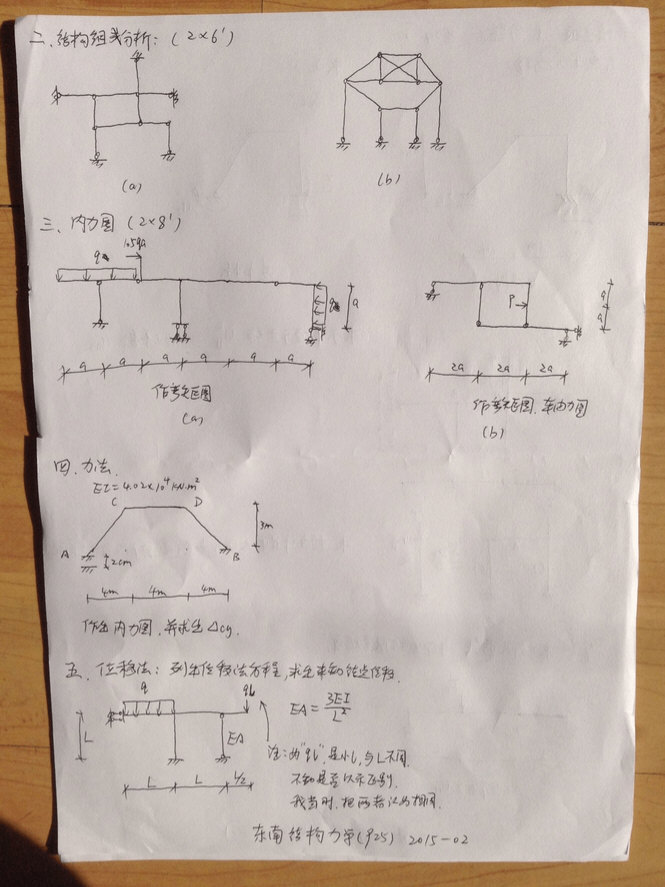 二、结构组成分析：(2×6')
(a)
(b)
三、内力图 (2×8')
1.5qa
q
q
a
a a a a a a
作弯矩图
(a)
P
a
a
2a 2a 2a
作弯矩图、轴力图
(b)
四、力法.
EI=4.02×10⁴ kN·m²
C D
A B
2cm
3m
4m 4m 4m
作出内力图，并求出Δcy.
五、位移法：列出位移法方程，求出未知结点位移.
q
ql
EA = 3EI/L²
L
EA
L L L/2
注：为"ql"，是小l，与L不同.
不知是否以示区别.
我当时，把两者认为相同.
东南结构力学(925) 2015-02